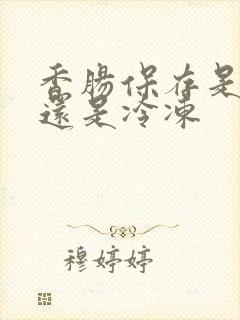 香腸保存是
還是冷凍
穆婷婷